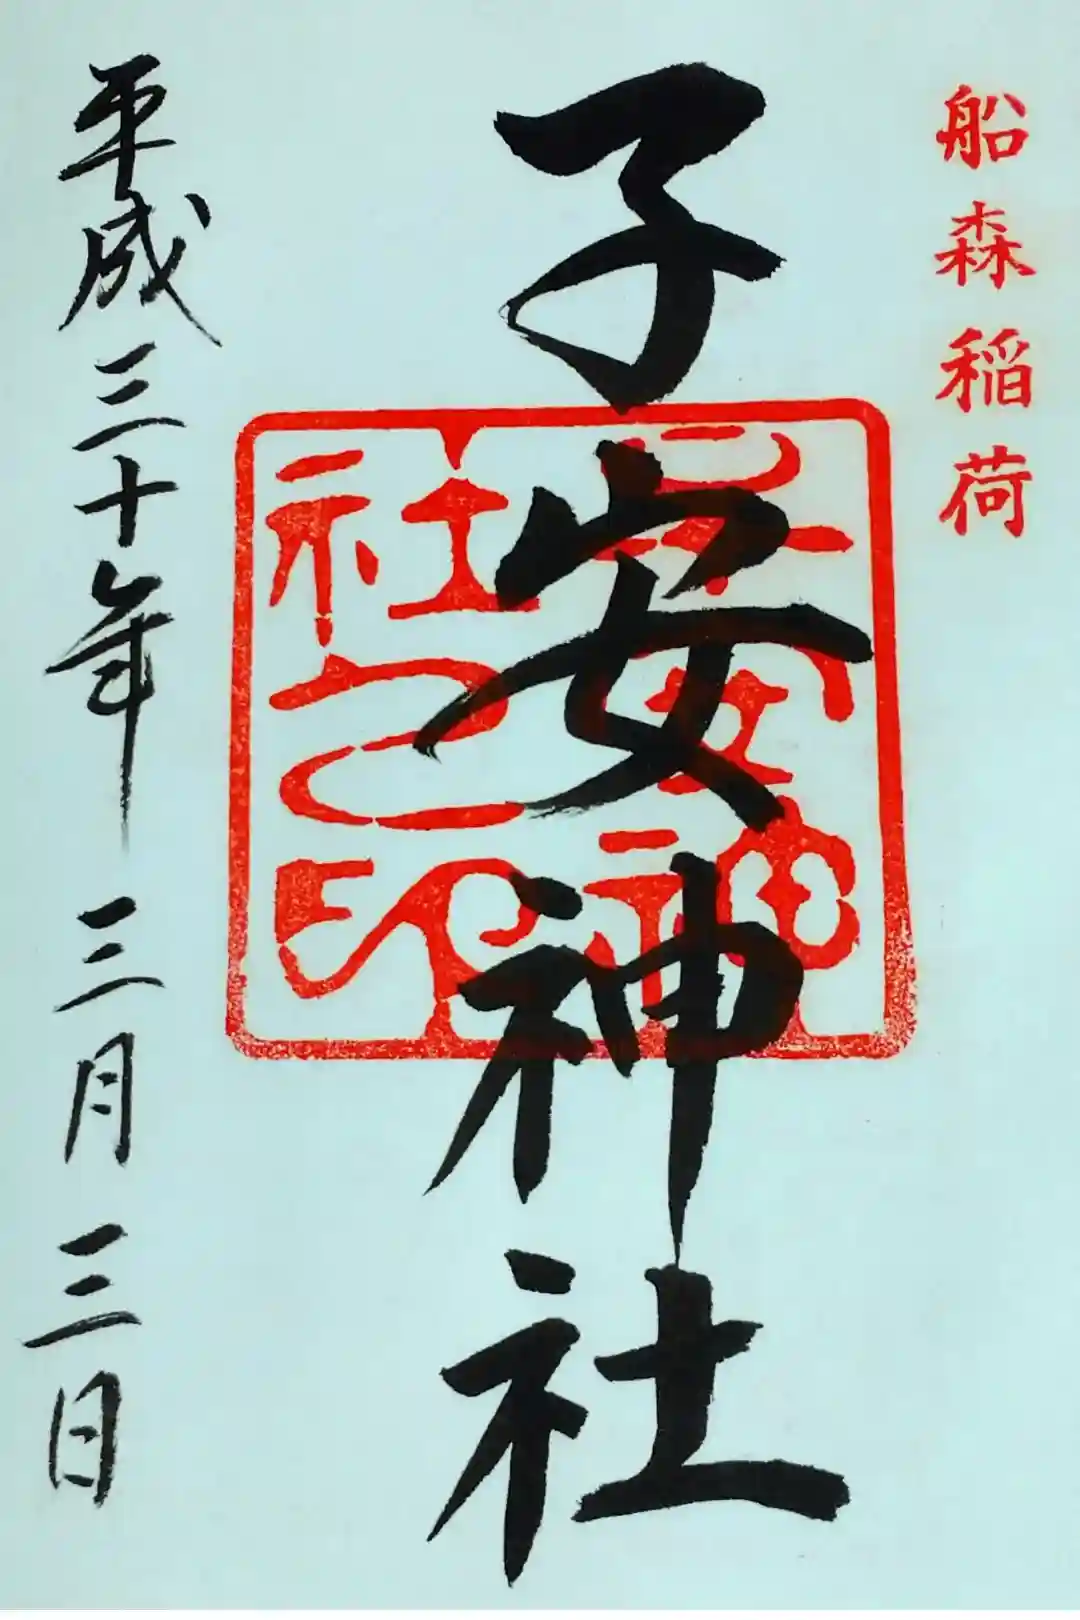 船森稲荷
子安神社
子安神
社之印
平成三十年 三月 三日